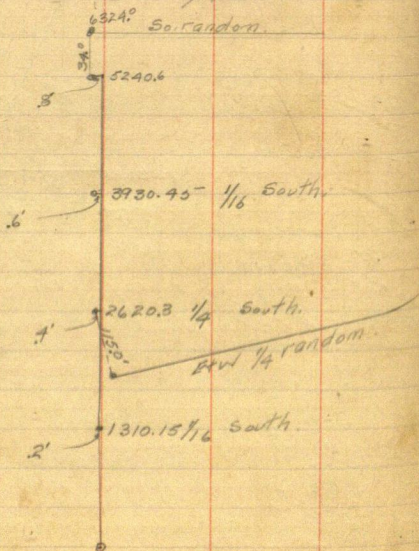 6324.0 So. random.
34.0
5240.6
.8'
3930.45 1/16 South.
.6'
2620.3 1/4 South.
.4'
115.0' E+W 1/4 random.
1310.15 1/16 South.
.2'